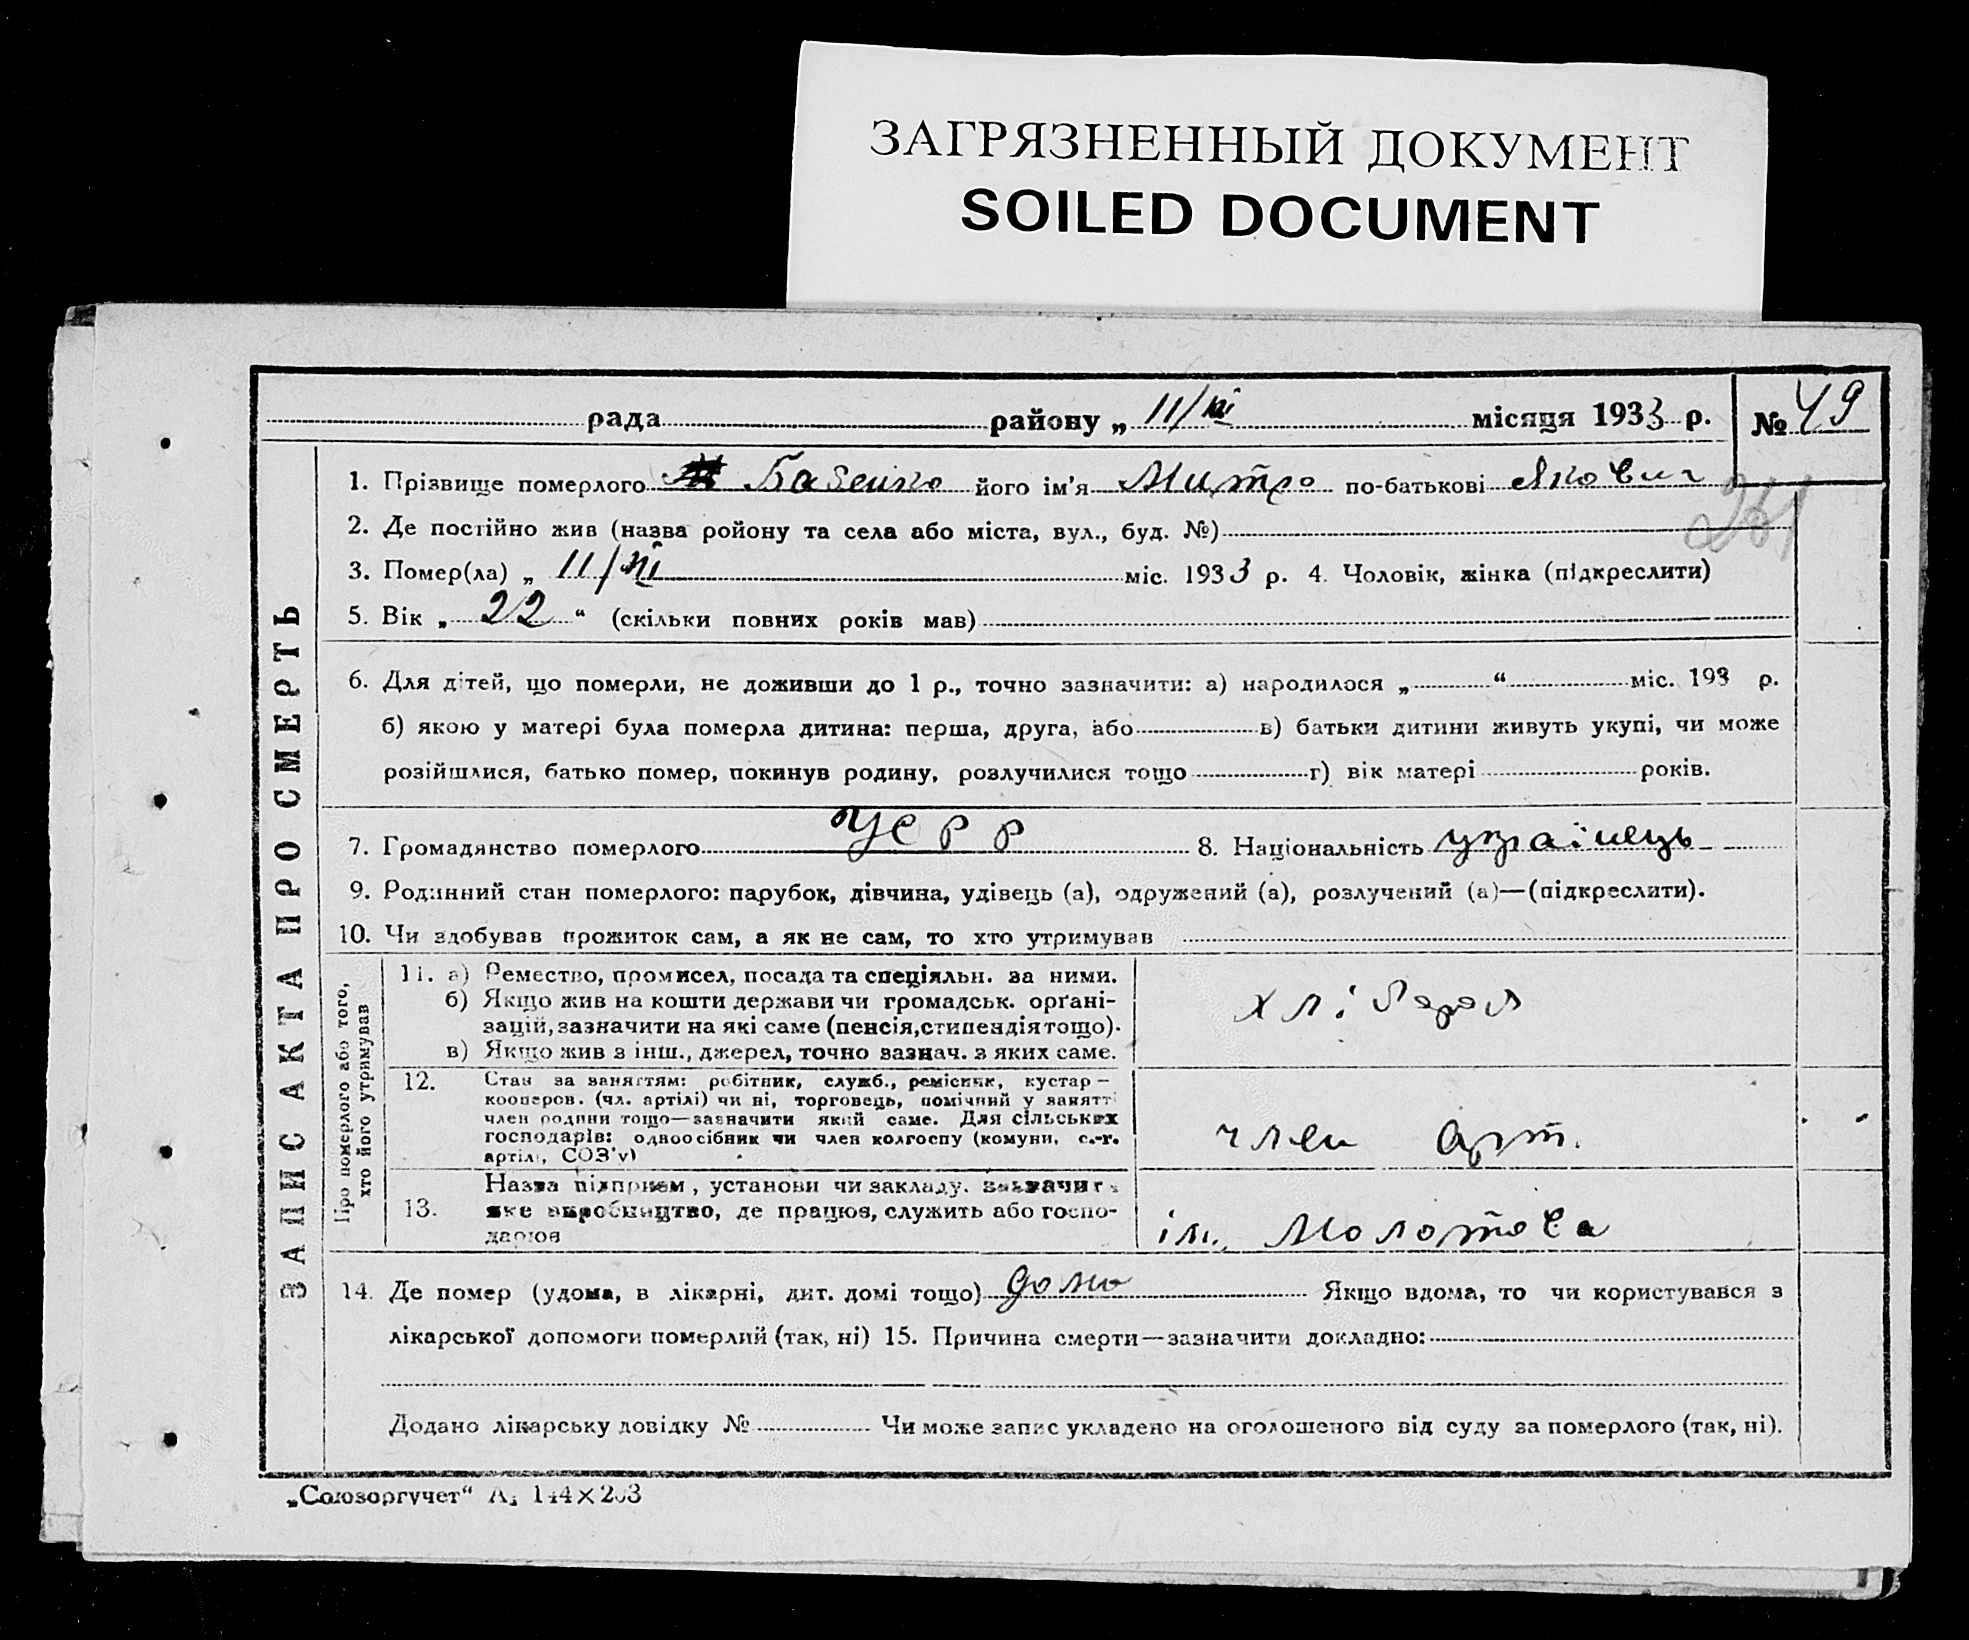 ЗАГРЯЗНЕННЫЙ ДОКУМЕНТ
SOILED DOCUMENT
рада району „ 11/III місяця 1933 р. № 49
ЗАПИС АКТА ПРО СМЕРТЬ
1. Прізвище померлого його ім'я Митро по-батькові Якович
261
2. Де постійно жив (назва ройону та села або міста, вул., буд. №)
3. Помер(ла) „ 11/III міс. 1933 р. 4. Чоловік, жінка (підкреслити)
5. Вік „ 22 “ (скільки повних років мав)
6. Для дітей, що померли, не доживши до 1 р., точно зазначити: а) народилося „ “ міс. 193 р.
б) якою у матері була померла дитина: перша, друга, або в) батьки дитини живуть укупі, чи може
розійшлися, батько помер, покинув родину, розлучилися тощо г) вік матері років.
7. Громадянство померлого УСРР 8. Національність українець
9. Родинний стан померлого: парубок, дівчина, удівець (а), одружений (а), розлучений (а)—(підкреслити).
10. Чи здобував прожиток сам, а як не сам, то хто утримував
Про померлого або того,
хто його утримував
11. а) Ремество, промисел, посада та спеціяльн. за ними.
б) Якщо жив на кошти держави чи громадськ. орґані-
зацій, зазначити на які саме (пенсія, стипендія тощо).
в) Якщо жив з інш., джерел, точно зазнач. з яких саме.
хлібороб
12. Стан за заняттям: робітник, служб., ремісник, кустар –
кооперов. (чл. артілі) чи ні, торговець, помічний у занятті
член родини тощо—зазначити який саме. Для сільських
господарів: одноосібник чи член колгоспу (комуни, с.-г.
артілі, СОЗ'у)
член арт.
13. Назва підприєм, установи чи закладу. зазначити
яке виробництво, де працюв, служить або госпо-
дарюв
ім. Молотова
14. Де помер (удома, в лікарні, дит. домі тощо) дома Якщо вдома, то чи користувався з
лікарської допомоги померлий (так, ні) 15. Причина смерти—зазначити докладно:
Додано лікарську довідку № Чи може запис укладено на оголошеного від суду за померлого (так, ні).
„Союзоргучет“ А₅ 144×203